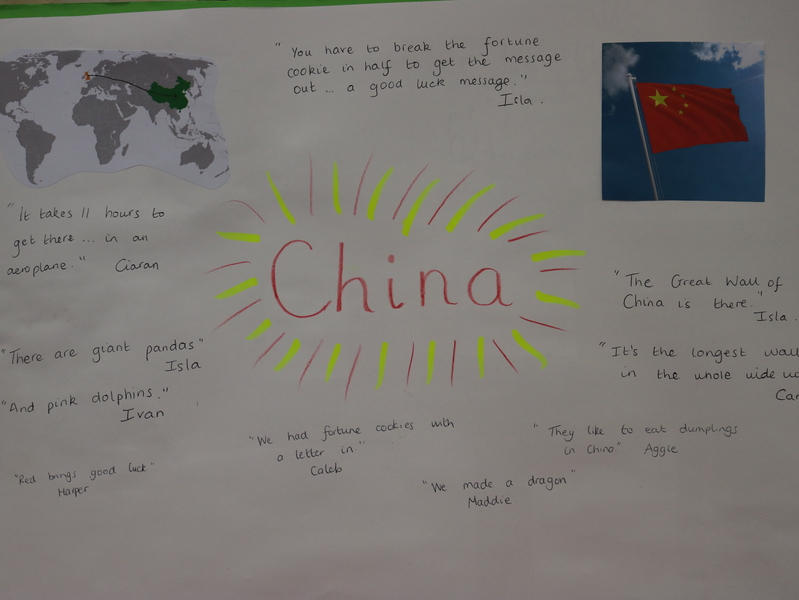 "You have to break the fortune
cookie in half to get the message
out ... a good luck message."
Isla.
"It takes 11 hours to
get there ... in an
aeroplane." Ciaran
China
"The Great Wall of
China is there."
Isla.
"There are giant pandas"
Isla
"It's the longest wall
in the whole wide
"And pink dolphins."
Ivan
"We had fortune cookies with
a letter in."
Caleb
"They like to eat dumplings
in China." Aggie
"Red brings good luck"
Harper
"We made a dragon"
Maddie